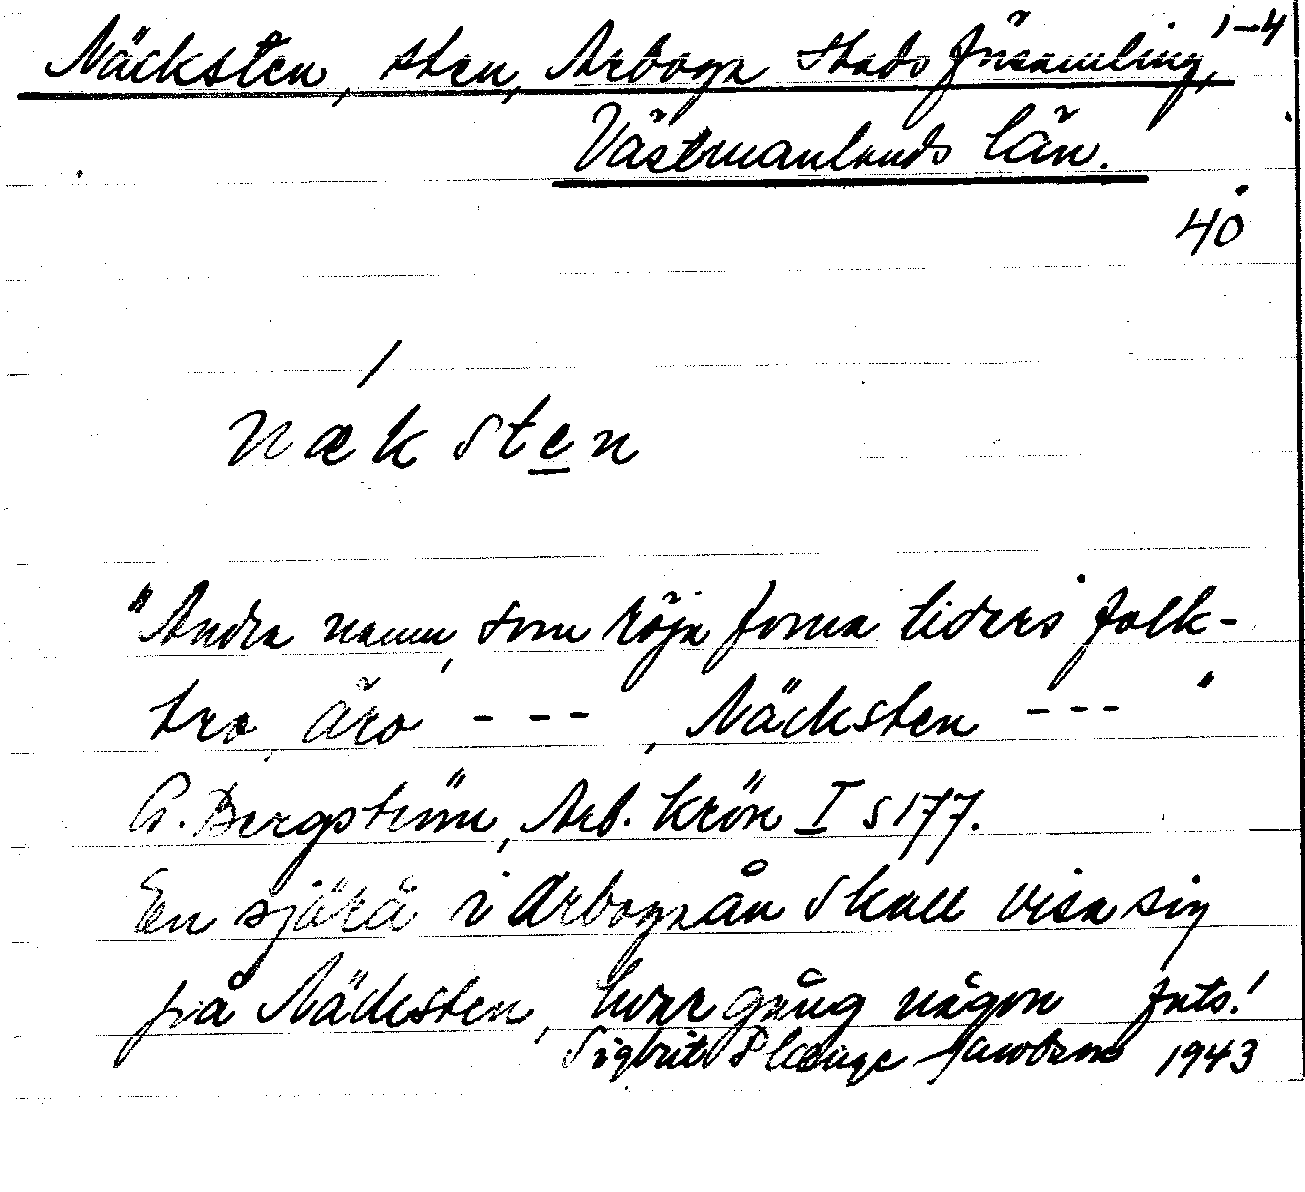 Näcksten, sten, Arboga Stadsförsamling, 1-4
Västmanlands län.
40
/
næksten
"Andra namn, som röja forna tiders folk-
tro, äro - - - , Näcksten - - - "
G. Bergström, Arb. Krön I s 177.
En sjörå i Arbogaån skall visa sig
på Näcksten, hvar gång någon
Sigbrit Plænge Jacobson 1943